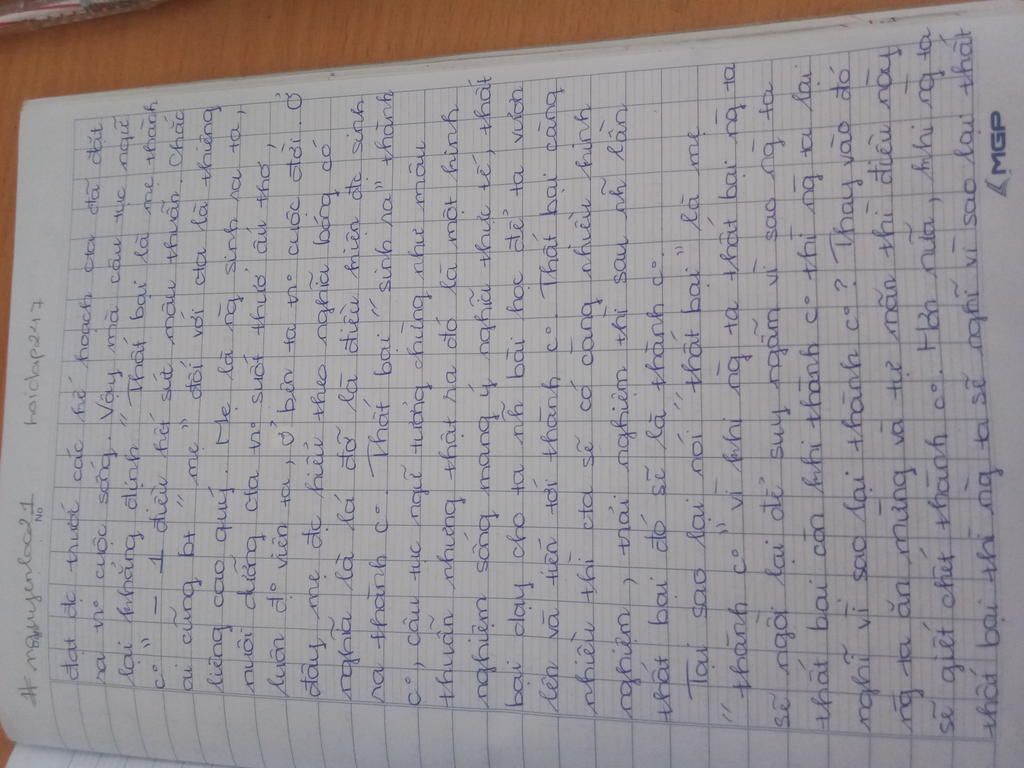 # nguyenloc21 hoidap247
No
đạt đc thước các kế hoạch cta đã đặt
ra tro cuộc sống. Vậy mà câu tục ngữ
lại khẳng định "Thất bại là mẹ thành
co" - 1 điều hết sức mâu thuẫn. Chắc
ai cũng bt "mẹ" đối với cta là thiêng
liêng cao quý. Mẹ là ng sinh ra ta,
nuôi dưỡng cta tro suốt thuở ấu thơ,
luôn độ viên ta, ở bên ta tro cuộc đời. Ở
đây mẹ đc hiểu theo nghĩa bóng có
nghĩa là là đỡ là điều kiện để sinh
ra thành co. Thất bại "sinh ra" thành
co, câu tục ngữ tưởng chừng như mâu
thuẫn nhưng thật ra đó là một kinh
nghiệm sống mang ý nghĩa thực tế, thất
bại dạy cho ta nh bài học để ta vươn
lên và tiến tới thành co. Thất bại càng
nhiều thì cta sẽ có càng nhiều kinh
nghiệm, trải nghiệm thì sau nh lần
thất bại đó sẽ là thành co.
Tại sao lại nói "thất bại" là mẹ
"thành co" vì khi ng ta thất bại ng ta
sẽ ngồi lại để suy ngẫm vì sao ng ta
thất bại còn khi thành co thì ng ta lại
nghĩ vì sao lại thành co? Thay vào đó
ng ta ăn mừng và tự mãn thì điều này
sẽ giết chết thành co. Hơn nữa, khi ng ta
thất bại thì ng ta sẽ nghĩ vì sao lại thất
MGP